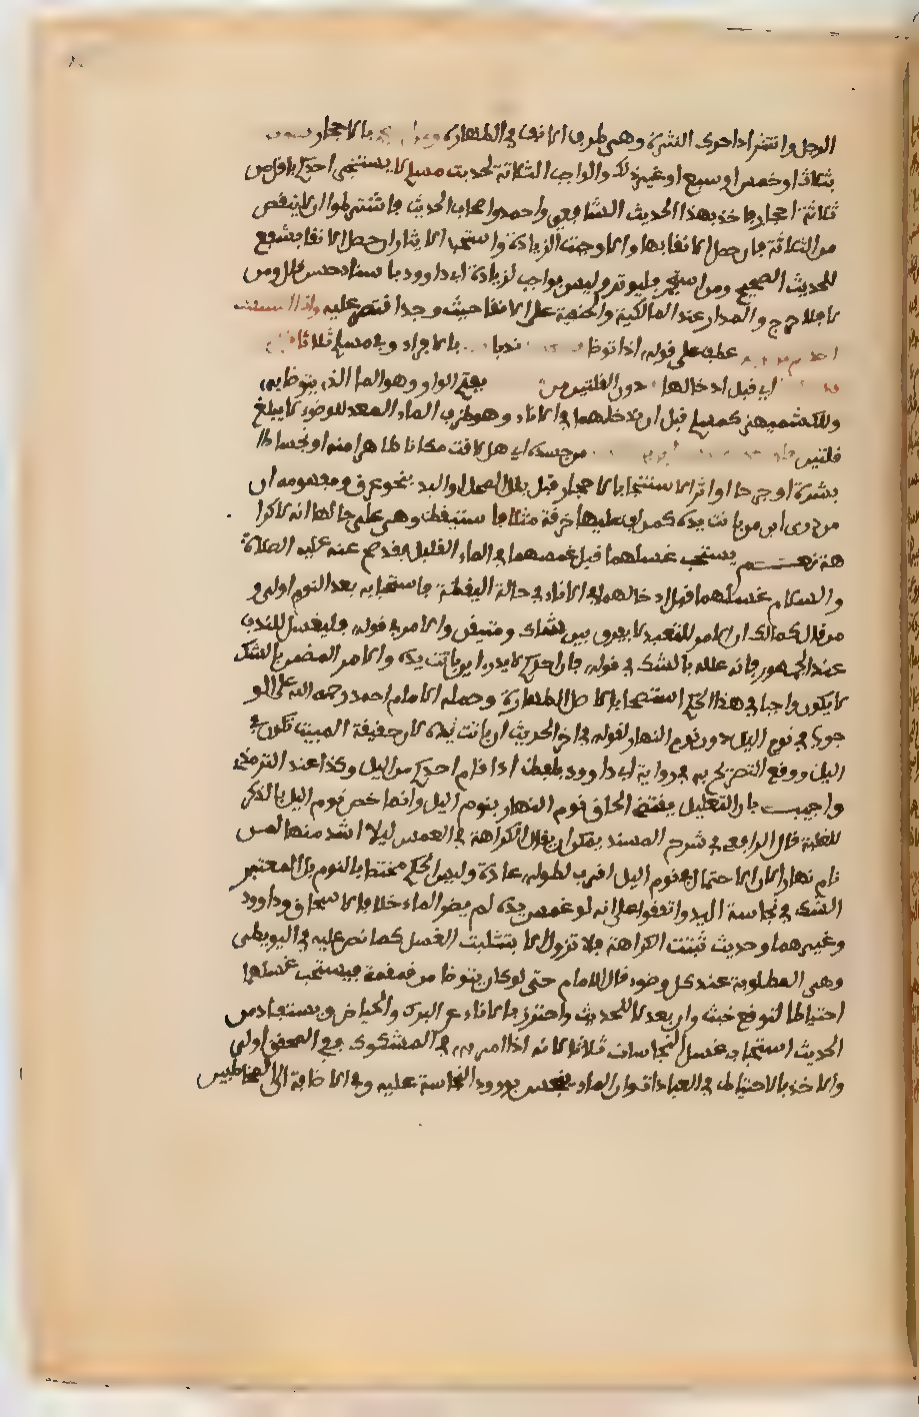 الرجل وانتثر اذا حرك النثرة وهي طرف الانف في الطهارة بالاحجار
بثلاث او خمس او سبع او غير ذلك والواجب الثلاثة لحديث مسلم لا يستنجي احدكم باقل من
ثلاثة احجار فاخذ بهذا الحديث الشافعي واحمد واصحاب الحديث فاشترطوا ان لا ينقص
من الثلاثة فان حصل الانقا بها والا وجبت الزيادة واستحب الايثار ان حصل الانقا بشفع
للحديث الصحيح ومن استجمر فليوتر وليس بواجب لزيادة ابي داوود باسناد حسن قال ومن
لا فلا حرج والمدار عند المالكية والحنفية على الانقا حيث وجد اقتصر عليه واذا استيقظ
عطف على قوله اذا توضا ندبا بالافراد وفي مسلم ثلاثا
اي قبل ادخالها دون القلتين من بفتح الواو وهو الما الذي يتوضا به
وللكشميهني كمسلم قبل ان يدخلهما في الاناء وهو ظرف الماء المعد للوضوء لا يبلغ
قلتين من جسده اي هل لاقت مكانا طاهرا منه او نجسا
بثرة او جرحا او اثر الاستنجاء بالاحجار قبل بلل المحل او اليد بنحو عرق ومفهومه ان
من درى اين باتت يده كمن لف عليها خرقة مثلا فاستيقظ وهي على حالها انه لا كرا
هة نعم يستحب غسلهما قبل غمسهما في الماء القليل فقد صح عنه عليه الصلاة
والسلام غسلهما قبل ادخالهما في الاناء في حالة اليقظة فاستحبابه بعد النوم اولى و
من قال كمالك ان الامر للتعبد لا يفرق بين شاك ومتيقن والامر في قوله فليغسل للندب
عند الجمهور فانه علله بالشك في قوله فان احدكم لا يدري اين باتت يده والامر المضمن بالشك
لا يكون واجبا في هذا الحكم استصحابا لاصل الطهارة وحمله الامام احمد رحمه الله على الو
جوب في نوم الليل دون نوم النهار لقوله في اخر الحديث اين باتت يده لان حقيقة المبيت تكون في
الليل ووقع التصريح به في رواية ابي داوود بلفظ اذا قام احدكم من الليل وكذا عند الترمذي
واجيب بان التعليل يقتضي الحاق نوم النهار بنوم الليل وانما خص نوم الليل بالذكر
للغلبة قال الرافعي في شرح المسند يمكن ان يقال الكراهة في الغمس ليلا اشد منها لمن
نام نهارا لان الاحتمال في نوم الليل اقرب لطوله عادة وليس الحكم مختصا بالنوم بل المعتبر
الشك في نجاسة اليد واتفقوا على انه لو غمس يده لم يضر الماء خلافا لاسحاق وداوود
وغيرهما وحيث ثبتت الكراهة فلا تزول الا بتثليث الغسل كما نص عليه في البويطي
وهي المطلوبة عند كل وضوء قال الامام حتى لو كان يتوضا من قمقمة فيستحب غسلها
احتياطا لتوقع خبث وان بعد لا للحدث واحترز بالاناء عن البرك والحياض ويستفاد من
الحديث استحباب غسل النجاسات ثلاثا لانه اذا امر به في المشكوك ففي المحقق اولى
والاخذ بالاحتياط في العبادات وان الماء ينجس بورود النجاسة عليه وفي الاضافة الى المخاطبين